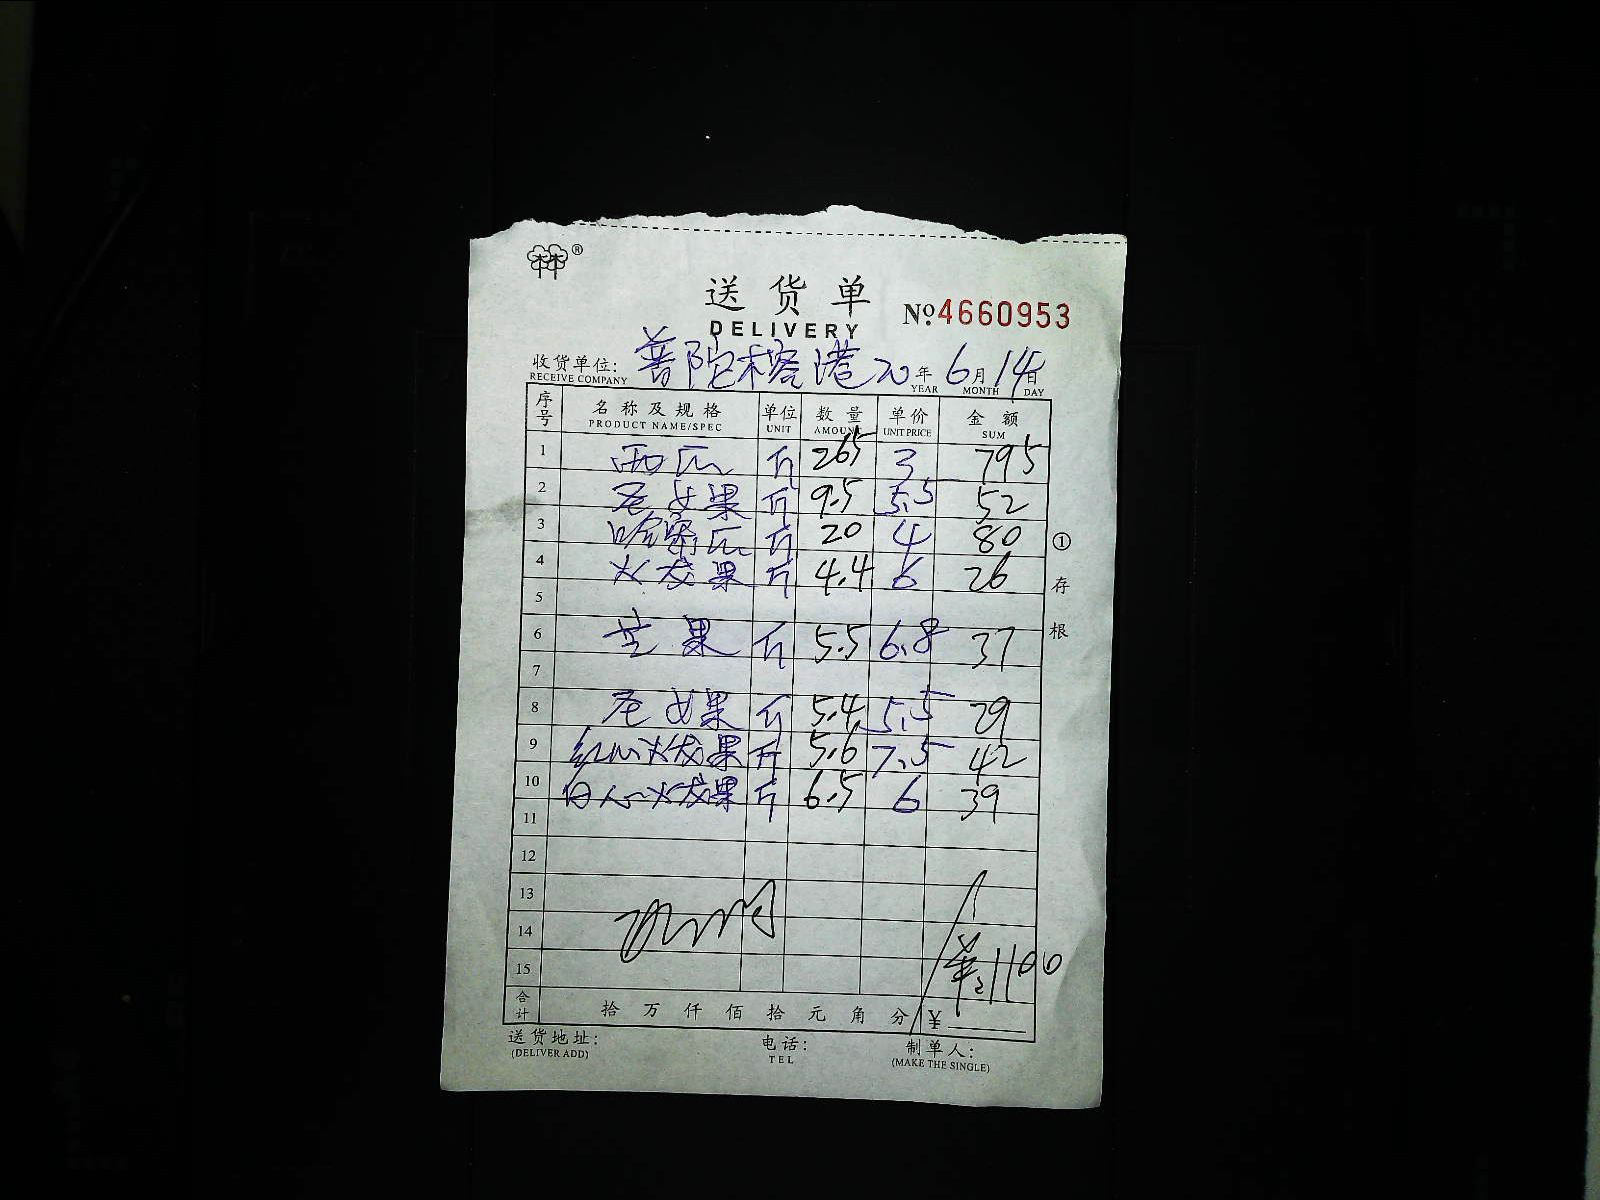 ®
送货单
DELIVERY
№ 4660953
收货单位: 普陀榕港 20年6月14日
RECEIVE COMPANY YEAR MONTH DAY
序号 名称及规格 单位 数量 单价 金额
PRODUCT NAME/SPEC UNIT AMOUNT UNIT PRICE SUM
1 西瓜 斤 265 3 795
2 圣女果 斤 9.5 5.5 52
3 哈密瓜 斤 20 4 80
4 火龙果 斤 4.4 6 26
5
6 芒果 斤 5.5 6.8 37
7
8 圣女果 斤 5.4 5.5 29
9 红心火龙果 斤 5.6 7.5 42
10 白心火龙果 斤 6.5 6 39
11
12
13
14
15
1100
合计 拾万仟佰拾元角分 ¥
送货地址: 电话: 制单人:
(DELIVER ADD) TEL (MAKE THE SINGLE)
①存根